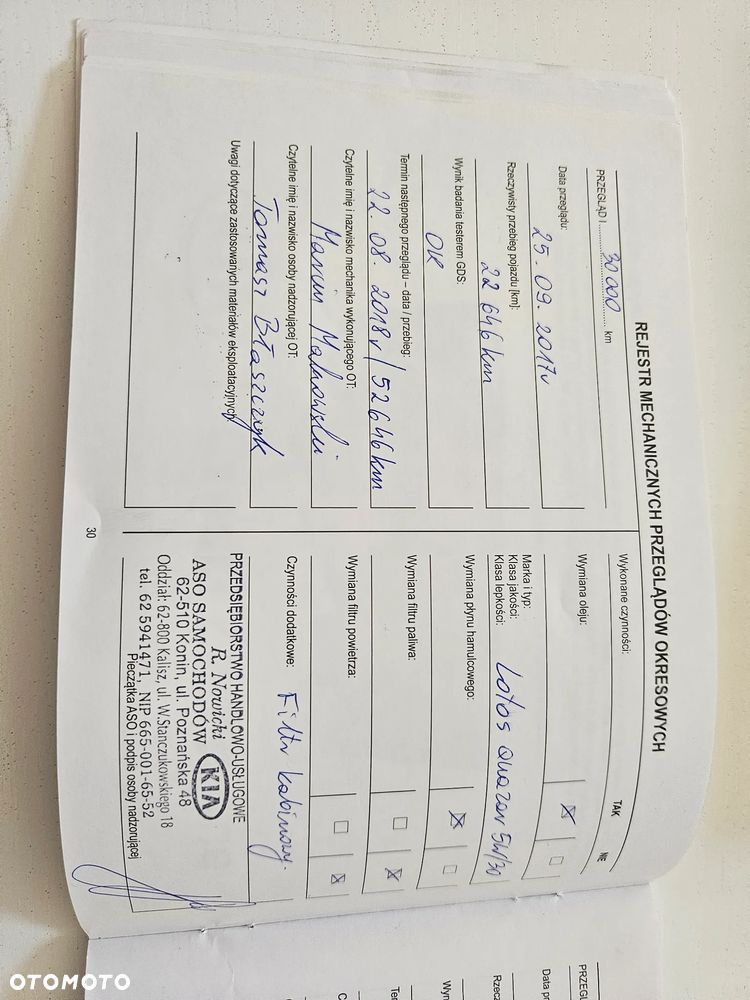 REJESTR MECHANICZNYCH PRZEGLĄDÓW OKRESOWYCH
PRZEGLĄD I 30 000 km
Data przeglądu:
25. 09. 2017r
Rzeczywisty przebieg pojazdu [km]:
22 646 km
Wynik badania testerem GDS:
OK
Termin następnego przeglądu – data / przebieg:
22. 08. 2018r / 52646 km
Czytelne imię i nazwisko mechanika wykonującego OT:
Marcin Malnowski
Czytelne imię i nazwisko osoby nadzorującej OT:
Tomasz Błaszczyk
Uwagi dotyczące zastosowanych materiałów eksploatacyjnych
Wykonane czynności: TAK NIE
Wymiana oleju: ☒ ☐
Marka i typ:
Klasa jakości:
Klasa lepkości:
Lotos Quazar 5W/30
Wymiana płynu hamulcowego: ☒ ☐
Wymiana filtru paliwa: ☐ ☒
Wymiana filtru powietrza: ☐ ☒
Czynności dodatkowe: Filtr kabinowy.
PRZEDSIĘBIORSTWO HANDLOWO-USŁUGOWE
R. Nowicki
ASO SAMOCHODÓW KIA
62-510 Konin, ul. Poznańska 48
Oddział: 62-800 Kalisz, ul. W.Stanczukowskiego 18
tel. 62 5941471, NIP 665-001-65-52
Pieczątka ASO i podpis osoby nadzorującej
30
PRZEGL
Data pr
Rzecz
Wyn
Ter
C
OTOMOTO